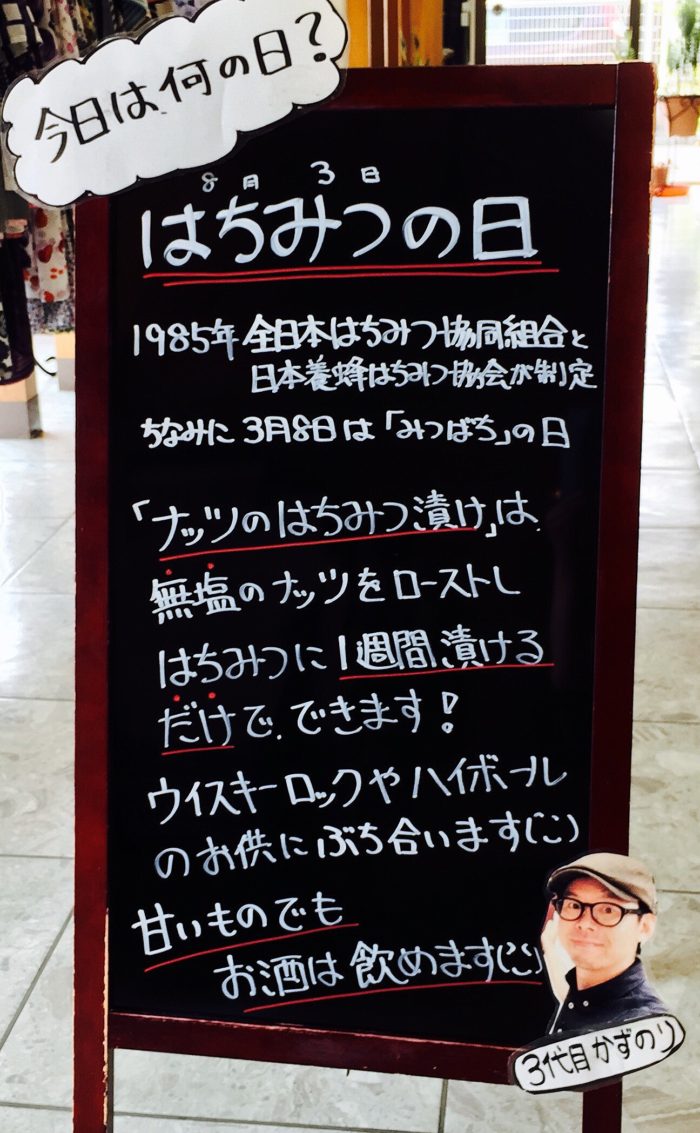 今日は何の日?
8月3日
はちみつの日
1985年 全日本はちみつ協同組合と
日本養蜂はちみつ協会が制定
ちなみに 3月8日は「みつばち」の日
「ナッツのはちみつ漬け」は
無塩のナッツをローストし
はちみつに1週間漬ける
だけで、できます!
ウイスキーロックやハイボール
のお供にぶち合います(こ)
甘いものでも
お酒は飲めます(こ)
3代目かずのり